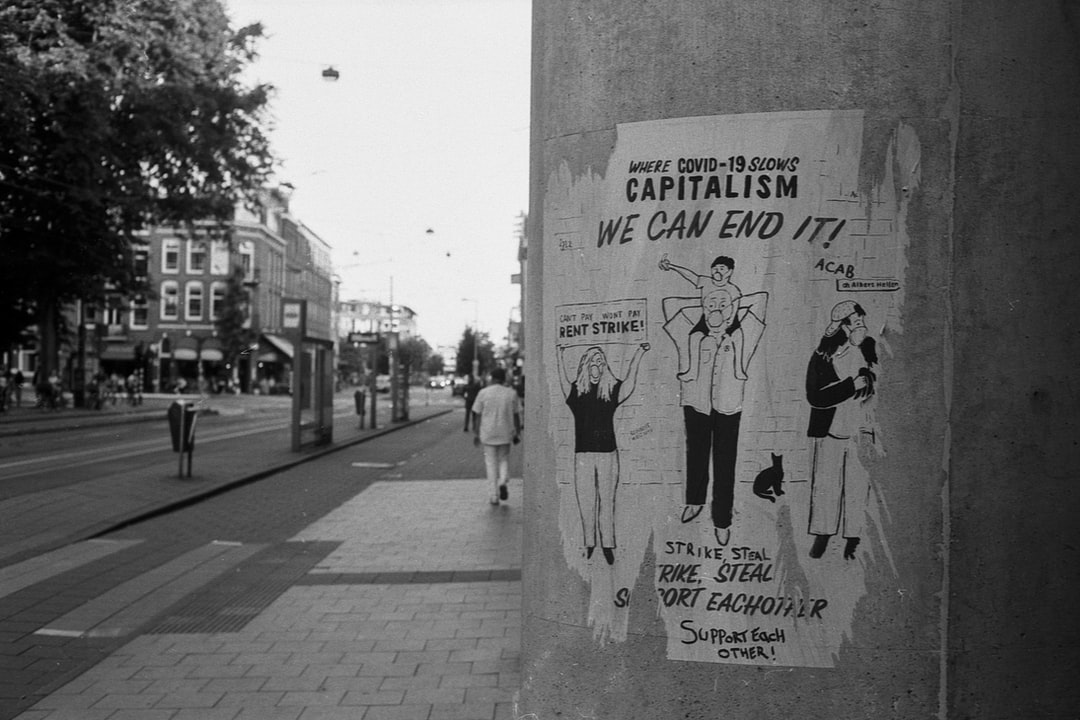 WHERE COVID-19 SLOWS
CAPITALISM
WE CAN END IT!
ACAB
CANT PAY WONT PAY
RENT STRIKE!
STRIKE, STEAL
TRIKE, STEAL
EACHOTHER
SUPPORT EACH
OTHER!